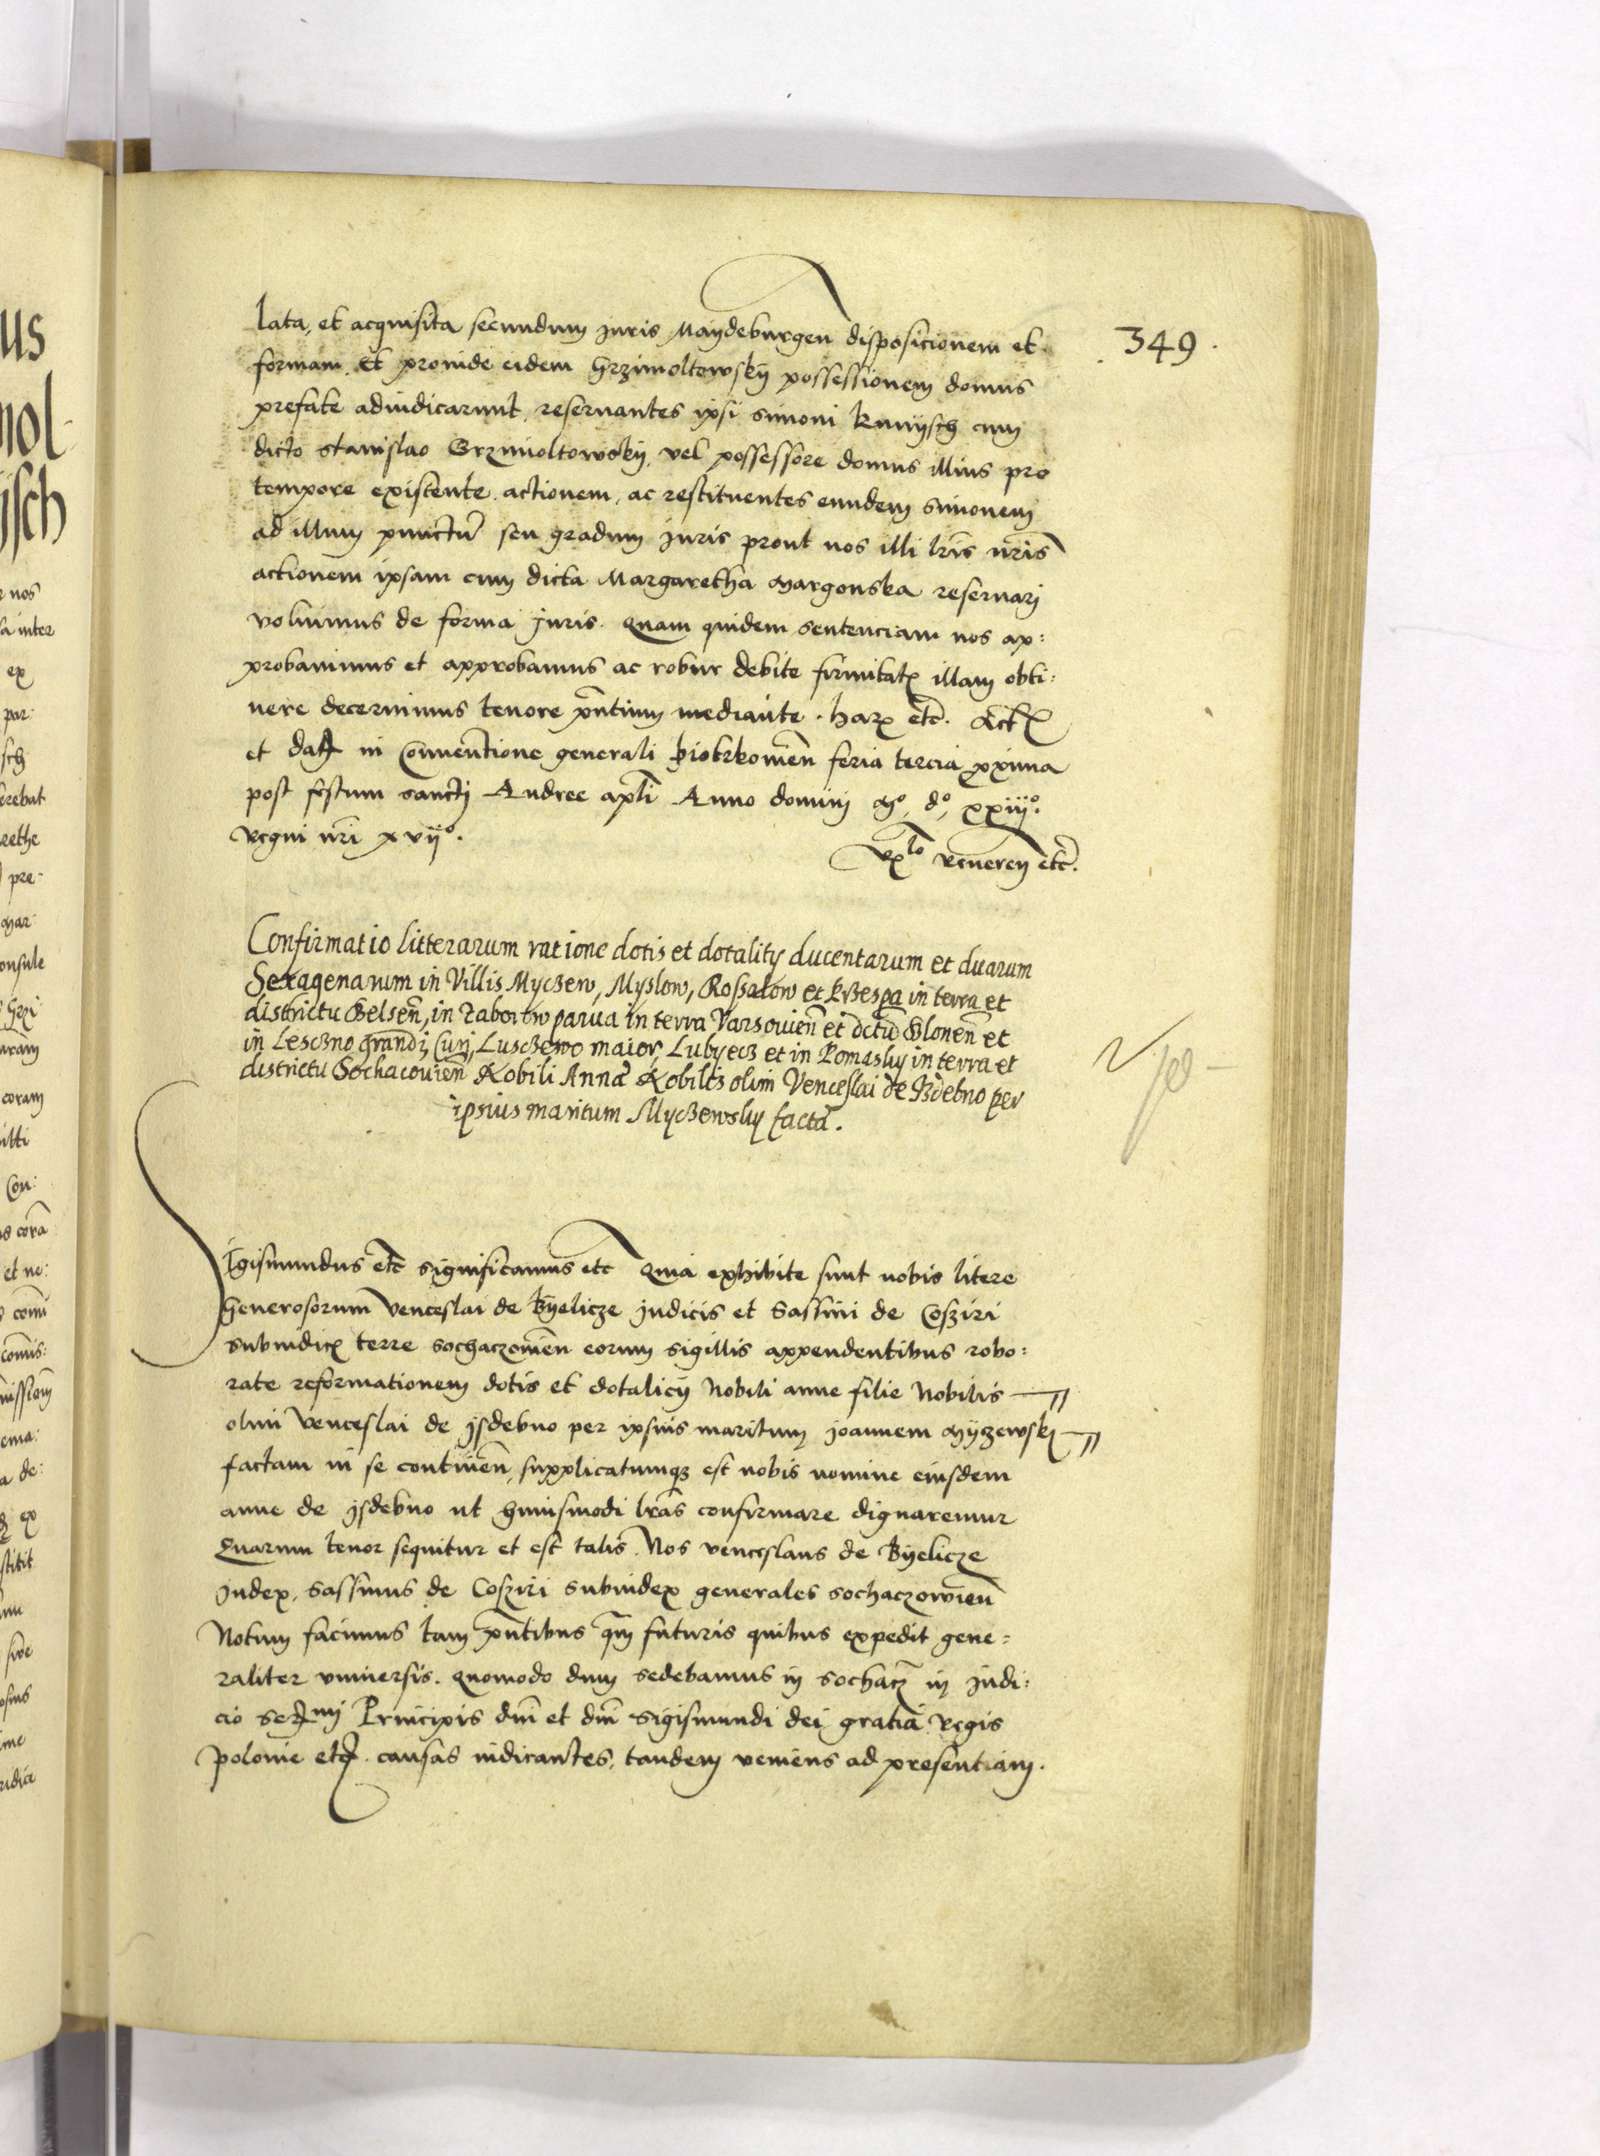 349.
lata, et acquisita secundum juris Maydeburgen disposicionem et
formam. Et proinde eidem Grzimoltowskÿ possessionem domus
prefate adiudicarunt, reservantes ipsi Simoni knÿsch cum
dicto Stanislao Grzimoltowskÿ, vel possessore domus illius pro
tempore existente. actionem, ac restituentes eundem Simonem
ad illum punctũ seu gradum juris prout nos illi lr̃is nr̃is
actionem ipsam cum dicta Margaretha Margonska reservari
voluimus de forma juris. Quam quidem sentenciam nos ap:
probavimus et approbamus ac robur debite firmitatꝭ illam obti:
nere decernimus tenore pñtium mediante. harꝝ etc̃. Actꝭ
et datꝭ in Conventione generali piotrkovieñ feria tercia proxima
post festum sancti Andree apl̃i Anno domini Mº, dº, xxiijº.
regni nr̃i xvijº.
Rlo Reveren etc̃.
Confirmatio litterarum ratione dotis et dotalitÿ ducentarum et duarum
Sexagenarum in Villis Myczew, Myslow, Rossalow et krzespa in terra et
districtu Belseñ, in Zaborow parva in terra Varsovieñ et dctũ Bloneñ et
in Lesczno grandi, Cuy, Lusczewo maior, Lubyecz et in Romasky in terra et
districtu Sochacovieñ Nobili Annæ Nobilis olim Venceslai de Izdebno per
ipsius maritum Myczewsky facta.
Sigismundus etc̃ significamus etc Quia exhibite sunt nobis litere
Generosorum Venceslai de Byelicze judicis et Sassini de Cosziri
subiudicꝭ terre sochaczovieñ eorum sigillis appendentibus robo:
rate reformationem dotis et dotalicÿ Nobili anne filie Nobilis
olim Venceslai de jsdebno per ipsius maritum joannem Mÿczewskj
factam in se contineñ, supplicatumqꝫ est nobis nomine eiusdem
anne de jsdebno ut huiusmodi lr̃as confirmare dignaremur
Quarum tenor sequitur et est talis. Nos venceslaus de Byelicze
judex, Sassinus de Cosziri subiudex generales sochaczovieñ
Notum facimus tam pñtibus q̃m futuris quibus expedit gene:
raliter universis. Quomodo dum sedebamus in sochacz̃ in judi:
cio Serᵐⁱ Principis dñi et dñi Sigismundi dei gratia Regis
polonie etcꝭ. causas iudicantes, tandem veniens ad presentiam.